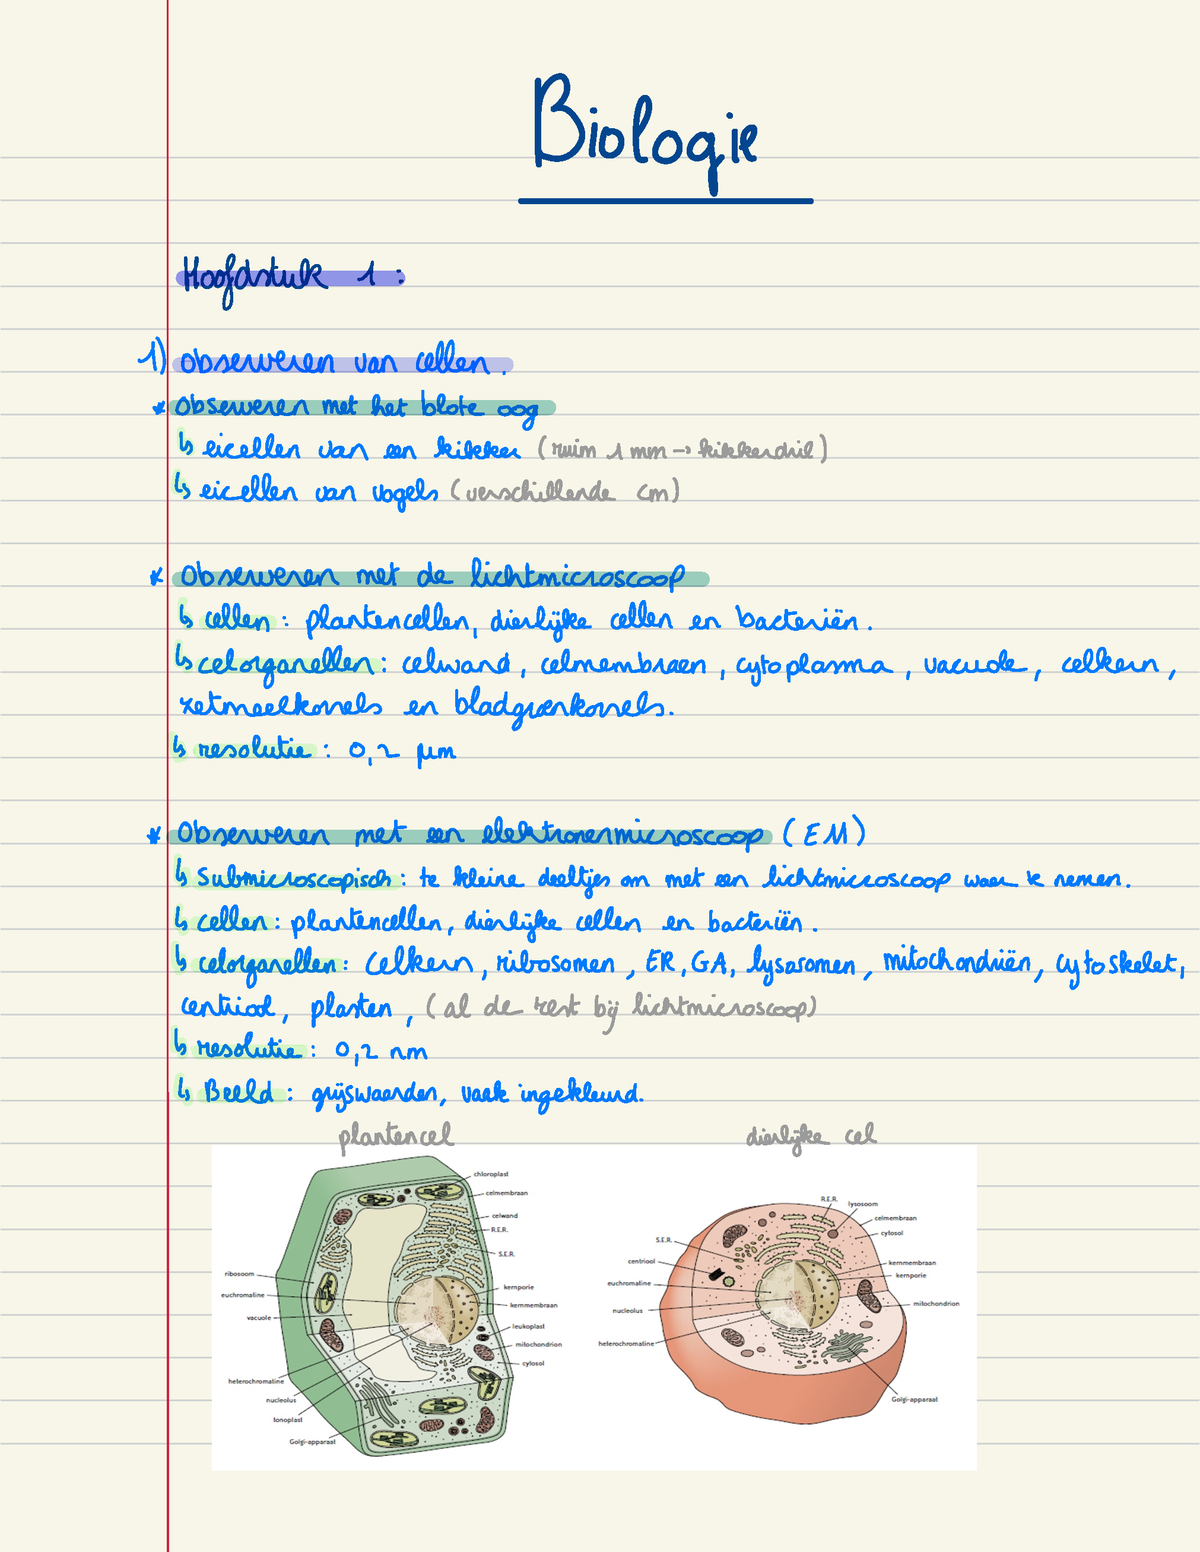 Biologie
Hoofdstuk 1:
1) observeren van cellen.
* observeren met het blote oog
↳ eicellen van een kikker (ruim 1 mm → kikkerdril)
↳ eicellen van vogels (verschillende cm)
* Observeren met de lichtmicroscoop
↳ cellen: plantencellen, dierlijke cellen en bacteriën.
↳ celorganellen: celwand, celmembraan, cytoplasma, vacuole, celkern,
zetmeelkorrels en bladgroenkorrels.
↳ resolutie: 0,2 µm
* Observeren met een elektronenmicroscoop (EM)
↳ Submicroscopisch: te kleine deeltjes om met een lichtmicroscoop waar te nemen.
↳ cellen: plantencellen, dierlijke cellen en bacteriën.
↳ celorganellen: celkern, ribosomen, ER, GA, lysosomen, mitochondriën, cytoskelet,
centriool, planten, (al de rest bij lichtmicroscoop)
↳ resolutie: 0,2 nm
↳ Beeld: grijswaarden, vaak ingekleurd.
plantencel
chloroplast
celmembraan
celwand
R.E.R.
S.E.R.
kernporie
kernmembraan
leukoplast
mitochondrion
cytosol
ribosoom
euchromatine
vacuole
heterochromatine
nucleolus
tonoplast
Golgi-apparaat
dierlijke cel
R.E.R.
lysosoom
celmembraan
cytosol
kernmembraan
kernporie
mitochondrion
Golgi-apparaat
S.E.R.
centriool
euchromatine
nucleolus
heterochromatine